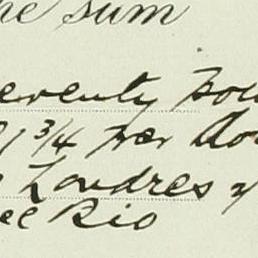 he sum
eventy pou
1 3/4 per do
Londres
Rio